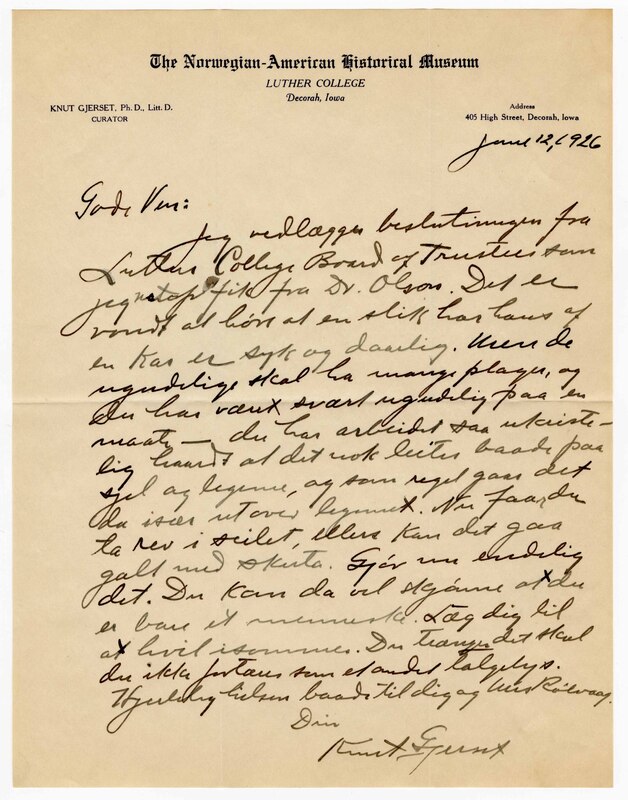 The Norwegian-American Historical Museum
LUTHER COLLEGE
Decorah, Iowa
KNUT GJERSET, Ph. D., Litt. D.
CURATOR
Address
405 High Street, Decorah, Iowa
June 12, 1926
Gode Ven:
Jeg vedlægger beslutningen fra
Luther College Board of Trustees som
jeg netop fik fra Dr. Olson. Det er
vondt at høre at en slik hars haus af
en Kar er syk og daarlig. Men de
ugudelige skal ha mange plager, og
du har været svært ugudelig paa en
maate — du har arbeidet saa ukriste-
lig haardt at det nok leites baade paa
sjel og legeme, og som regel gaar det
da især ut over legemet. Nu faar du
ta rev i seilet, ellers kan det gaa
galt med skuta. Gjør nu endelig
det. Du kan da vel skjønne at du
er bare et menneske. Læg dig til
at hvil i sommer. Du trænger det skal
du ikke fortæres som et andet talgelys.
Hjertelig hilsen baade til dig og Mrs Rölvaag.
Din
Knut Gjerset